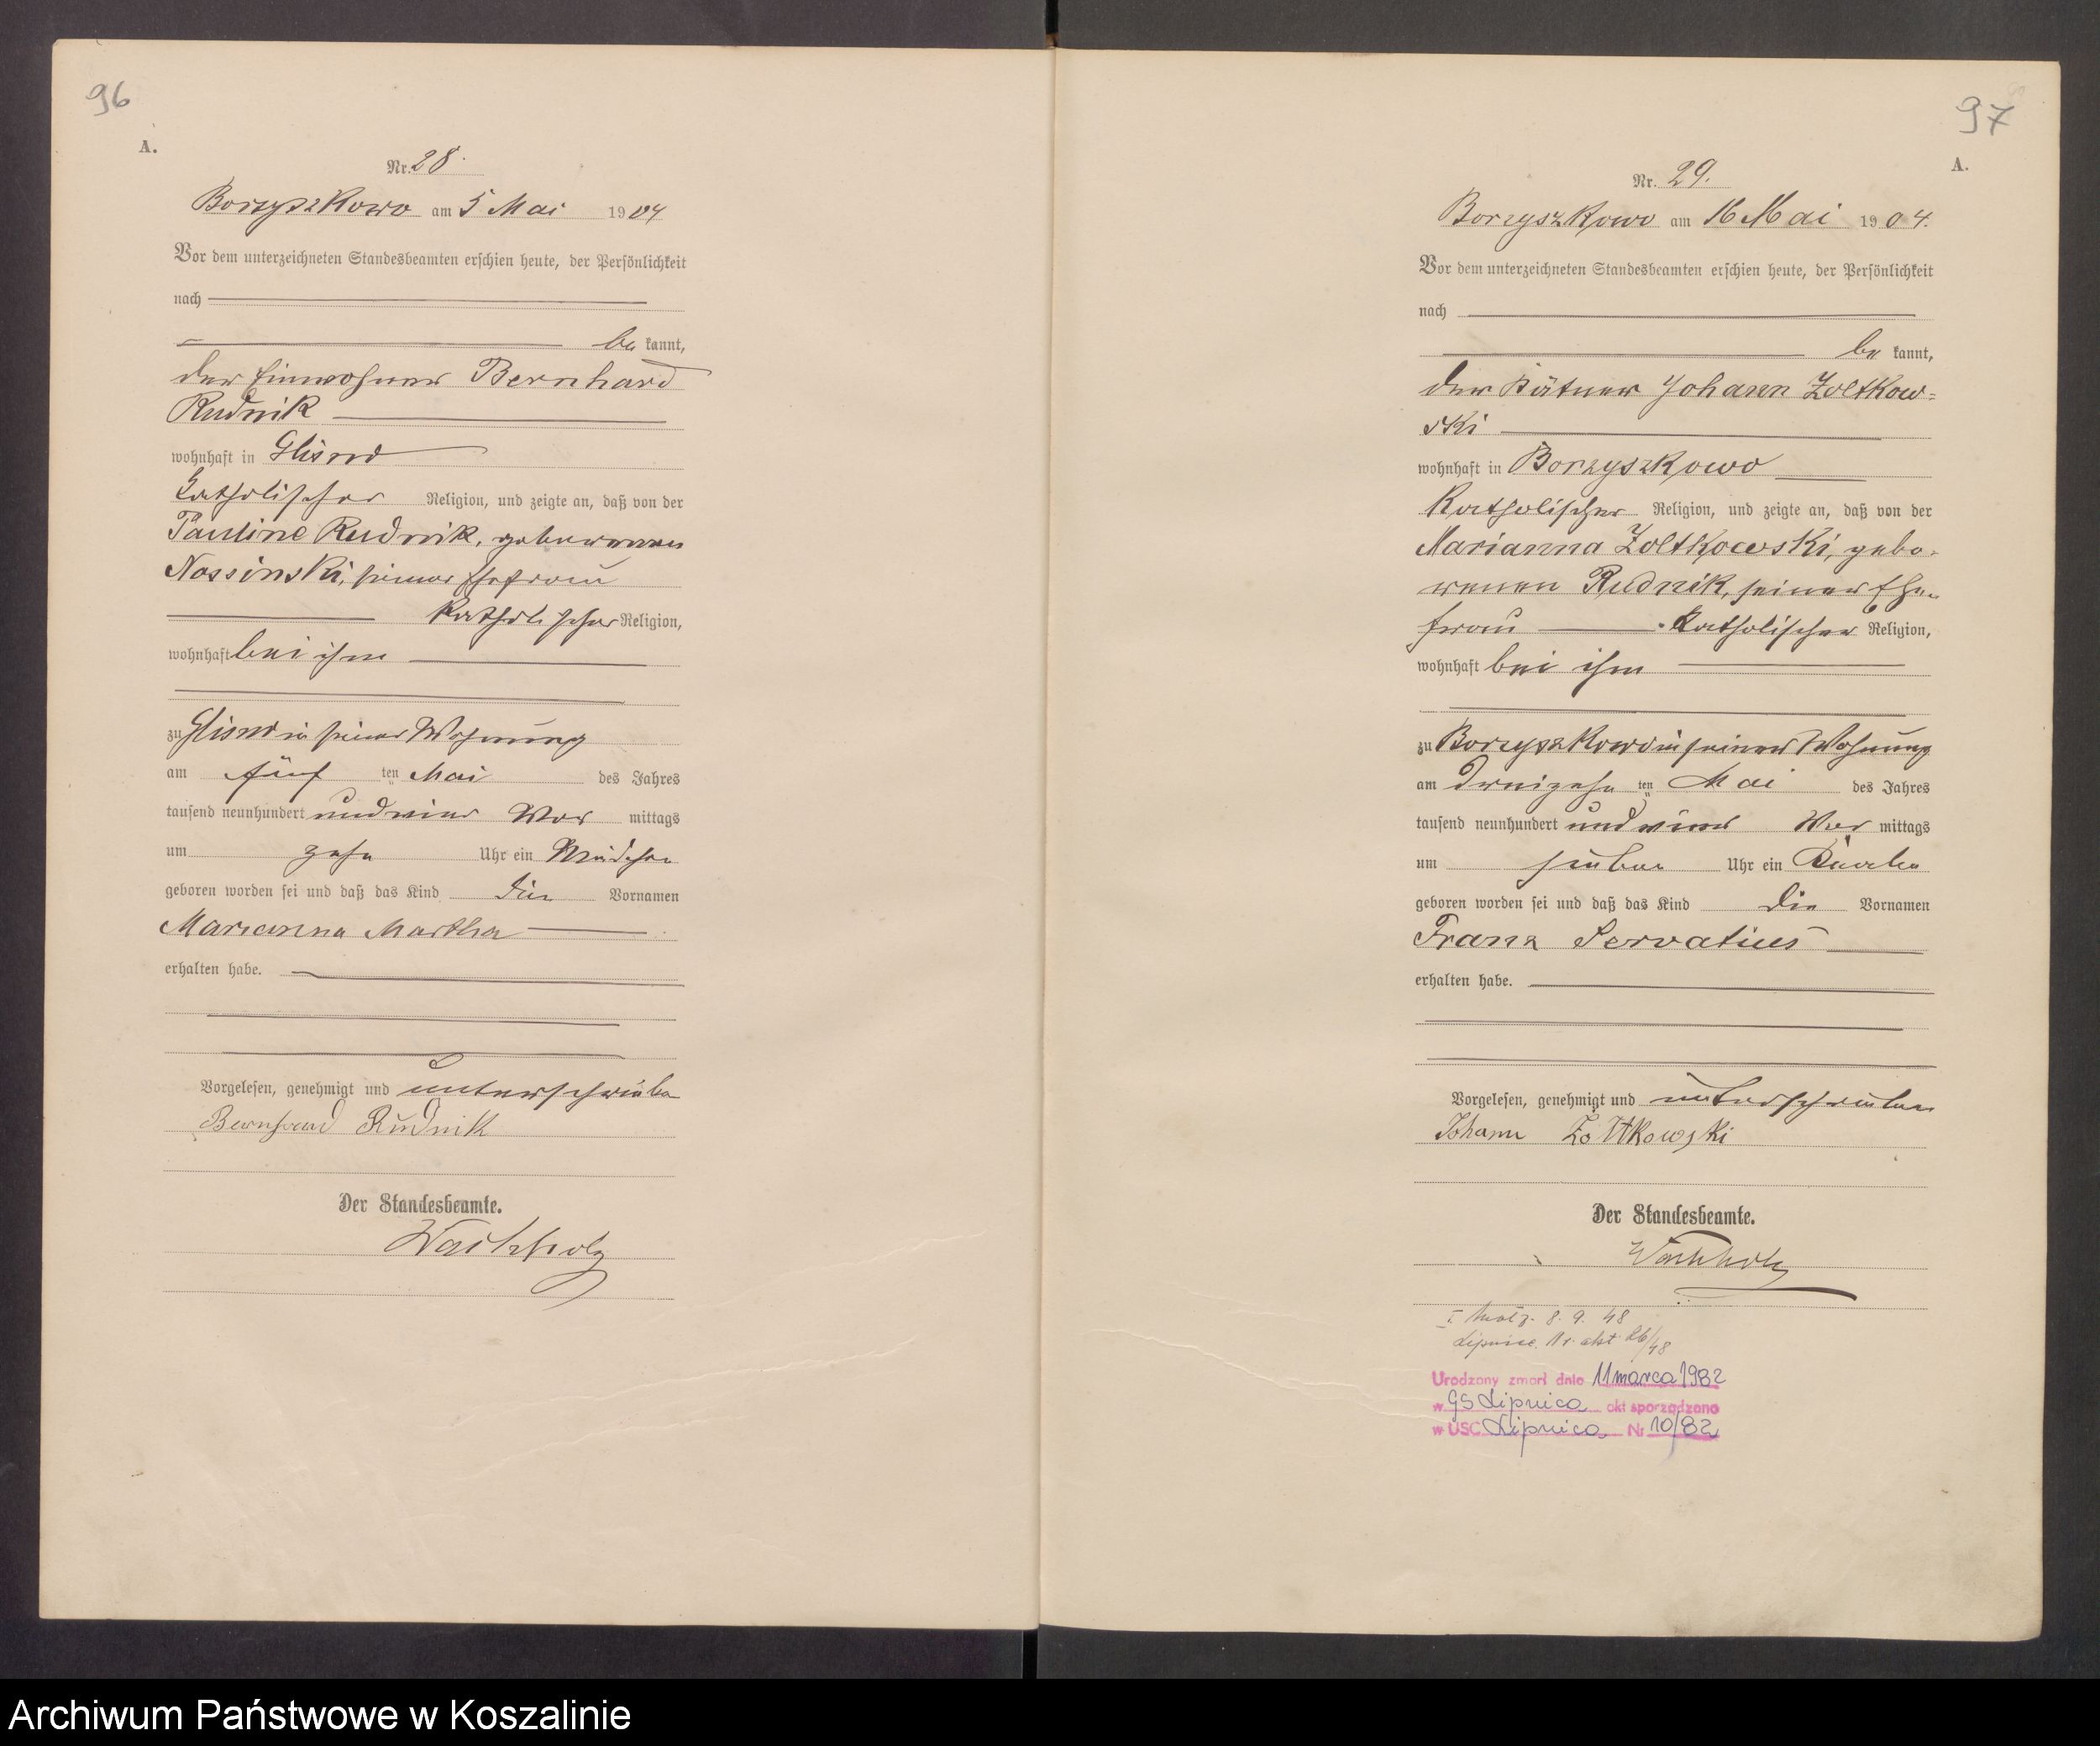 96
A.
Nr. 28.
Borzyszkowo am 5 Mai 1904
Vor dem unterzeichneten Standesbeamten erschien heute, der Persönlichkeit
nach
be kannt,
der Einwohner Bernhard
Rudnik
wohnhaft in Glisno
katholischer Religion, und zeigte an, daß von der
Pauline Rudnik, geborenen
Nossinski, seiner Ehefrau
katholischer Religion,
wohnhaft bei ihm
zu Glisno in seiner Wohnung
am fünf ten Mai des Jahres
tausend neunhundert und vier Vor mittags
um zehn Uhr ein Mädchen
geboren worden sei und daß das Kind die Vornamen
Marianna Martha
erhalten habe.
Vorgelesen, genehmigt und unterschrieben
Bernhard Rudnik
Der Standesbeamte.
Wachholz
97
A.
Nr. 29.
Borzyszkowo am 16 Mai 1904.
Vor dem unterzeichneten Standesbeamten erschien heute, der Persönlichkeit
nach
be kannt,
der Kätner Johann Zoltkow=
ski
wohnhaft in Borzyszkowo
katholischer Religion, und zeigte an, daß von der
Marianna Zoltkowski, gebo-
renen Rudnik, seiner Ehe-
frau katholischer Religion,
wohnhaft bei ihm
zu Borzyszkowo in seiner Wohnung
am dreizehn ten Mai des Jahres
tausend neunhundert und vier Vor mittags
um sieben Uhr ein Knabe
geboren worden sei und daß das Kind die Vornamen
Franz Servatius
erhalten habe.
Vorgelesen, genehmigt und unterschrieben
Johann Żołtkowski
Der Standesbeamte.
Wachholz
I 8. 9. 48
Lipnica Nr. akt 26/48
Urodzony zmarł dnia 11 marca 1982
w GS Lipnica akt sporządzono
w USC Lipnica Nr 10/82
Archiwum Państwowe w Koszalinie